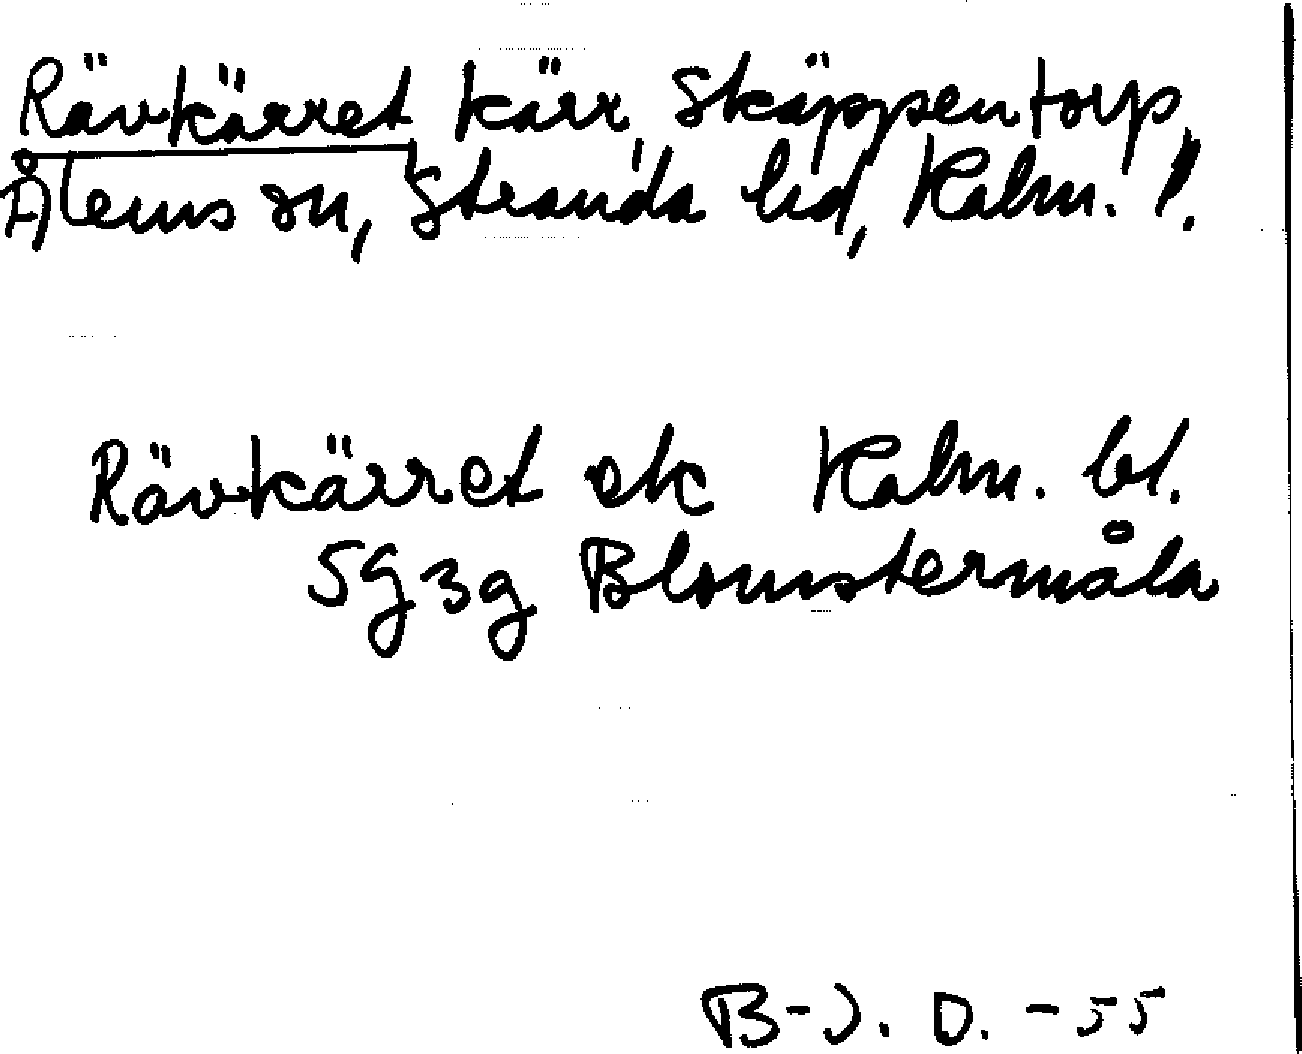 Rävkärret, kärr, Skäppentorp,
Ålems sn, Stranda hd, Kalm. l.
Rävkärret ek Kalm. bl.
5G3g Blomstermåla
B-J. D. -55